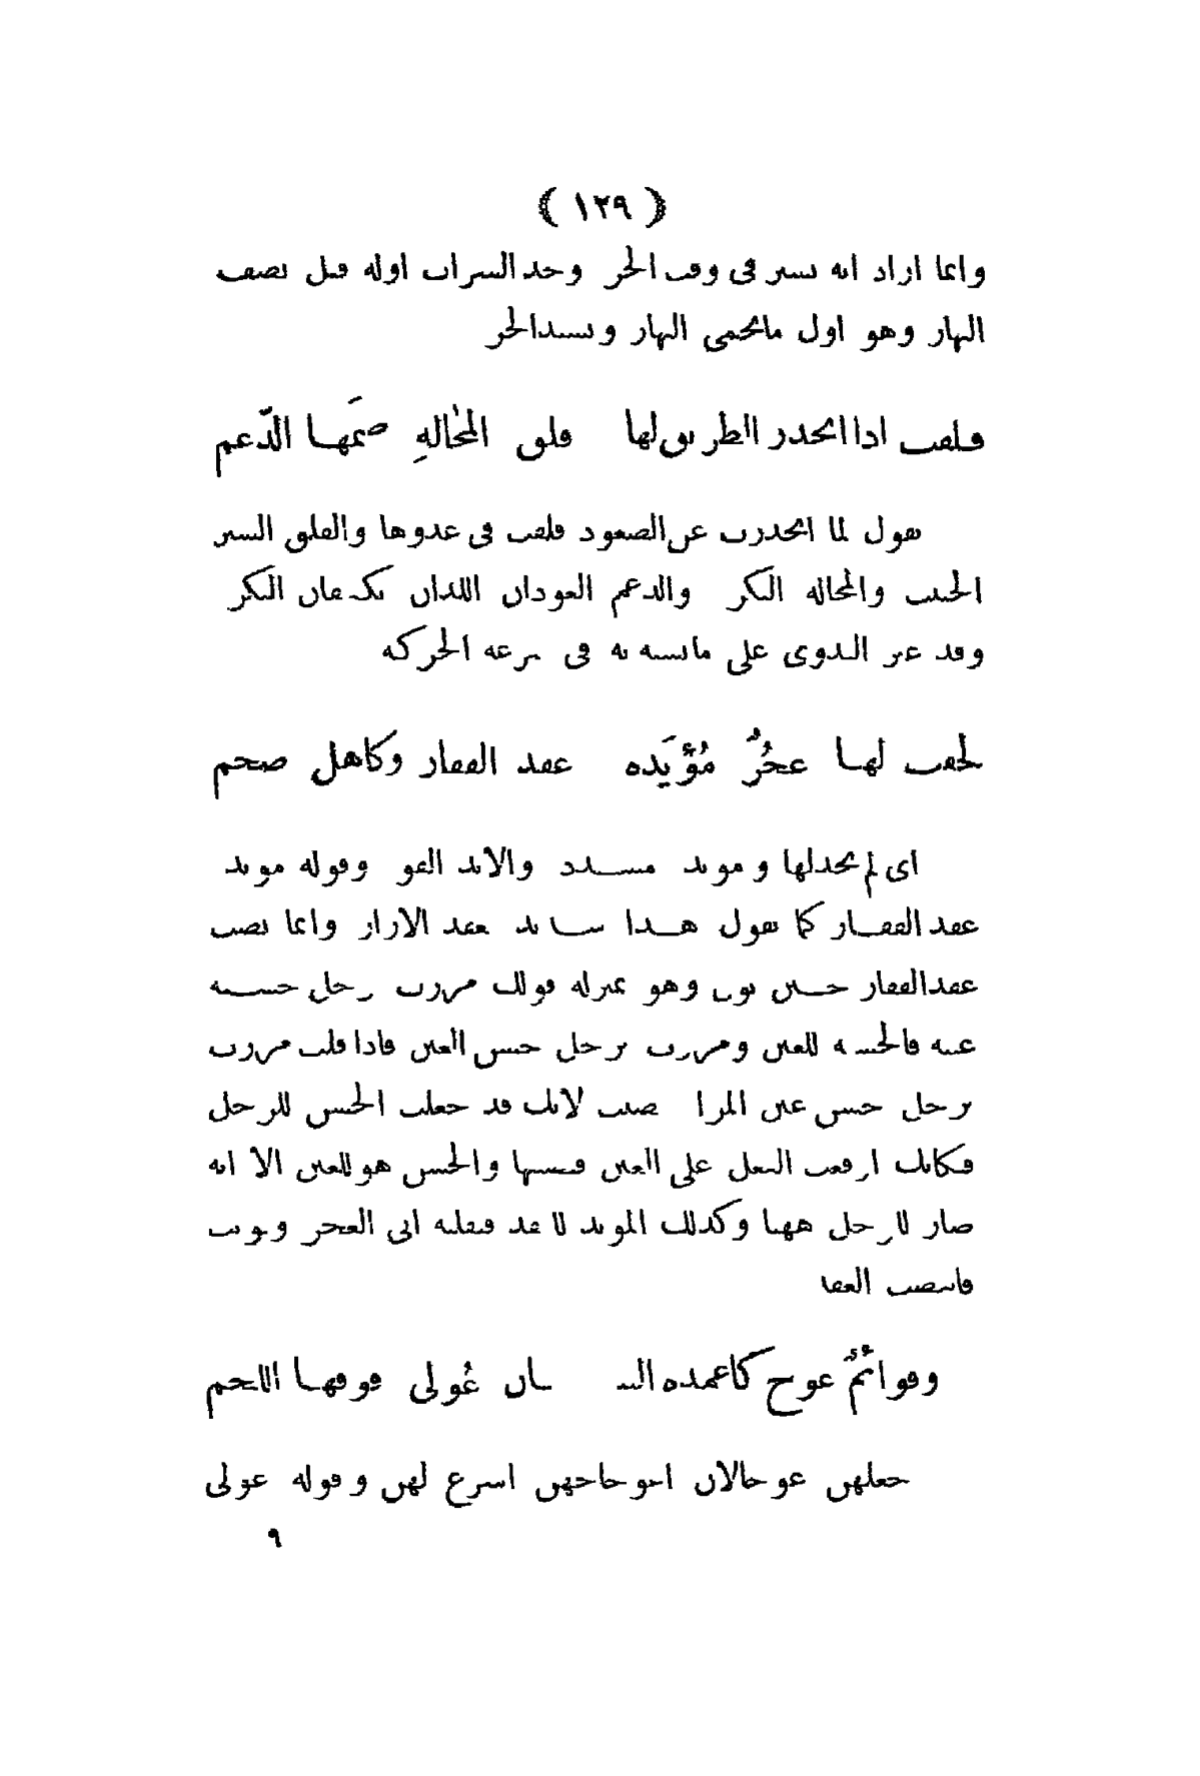 ﴿ ١٢٩ ﴾
وانما اراد انه يسير فى وقت الحر وحد السراب اوله قبل نصف
النهار وهو اول مايحمى النهار ويشتدالحر
قلقت اذا انحدر الطريق لها قلق المَحالهِ ضَمَّها الدَّعم
يقول لما انحدرت عن الصعود قلقت فى عدوها والقلق السير
الحثيث والمحاله البكر والدعم العودان اللذان يكتنفان البكر
وقد عبر البدوى على مايشبه به فى سرعه الحركه
لحقت لها عجُزٌ مُؤَيَّده عقد الفقار وكاهل ضخم
اى لم يخذلها ومويد مشدد والايد القو وقوله مويد
عقد الفقار كما تقول هذا شابد معقد الازار وانما نصب
عقدالفقار حين نون وهو بمنزله قولك مررت برجل حسنه
عينه فالحسنه للعين ومررت برجل حسن العين فاذا قلت مررت
برجل حسن عين المرا نصبت لانك قد جعلت الحسن للرجل
فكانك ارقعت الفعل على العين فنصبها والحسن هو للعين الا انه
صار للرجل ههنا وكذلك المويد للعقد فنقلته الى العجز ونونت
فانتصب العقد
وقوائمٌ عوج كاعمده البنـ ـيان عُولى فوقها اللحم
جعلهن عوجالان اعوجاجهن اسرع لهن وقوله عولى
٩